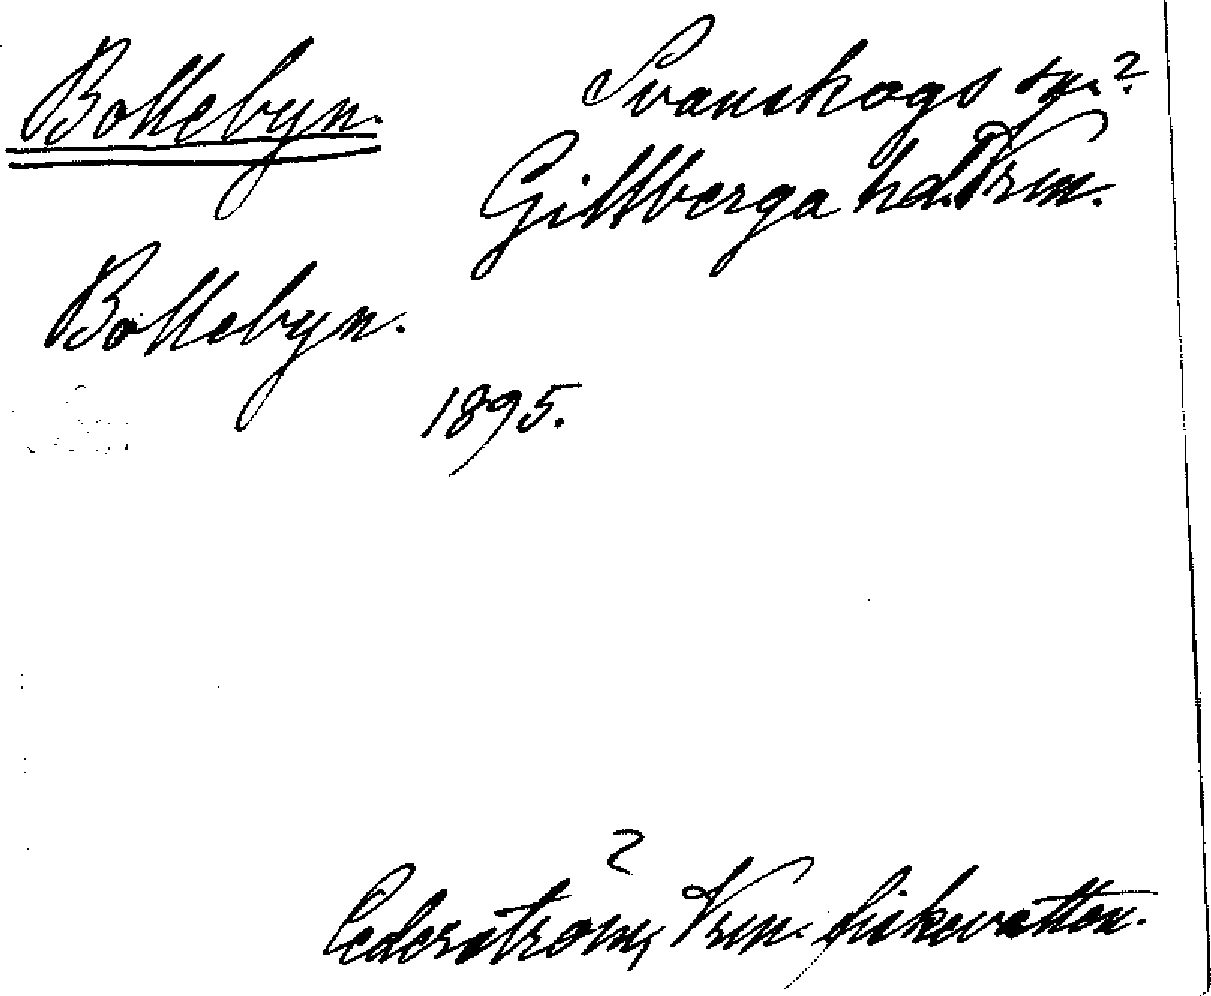 Bollebyn. Svanskogs sn.?
Gillberga hd. Vrm.
Bollebyn.
1895.
2
Cederström, Vrm. fiskevatten.